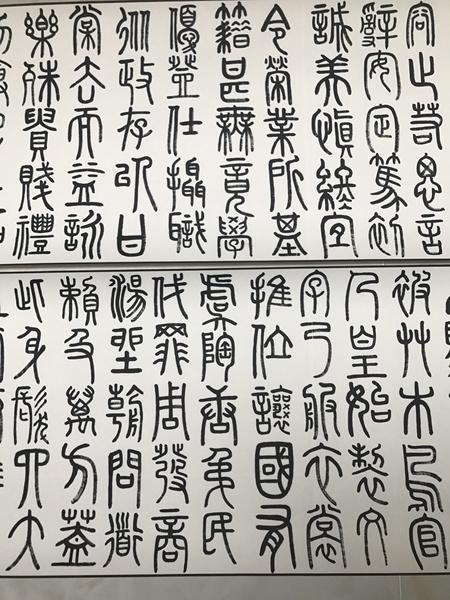 容止若思言
辭安定篤初
誠美慎終宜
令榮業所基
籍甚無竟學
優登仕攝職
從政存以甘
棠去而益詠
樂殊貴賤禮
被草木鳥官
人皇始製文
字乃服衣裳
推位讓國有
虞陶唐弔民
伐罪周發商
湯坐朝問道
賴及萬方蓋
此身髮四大